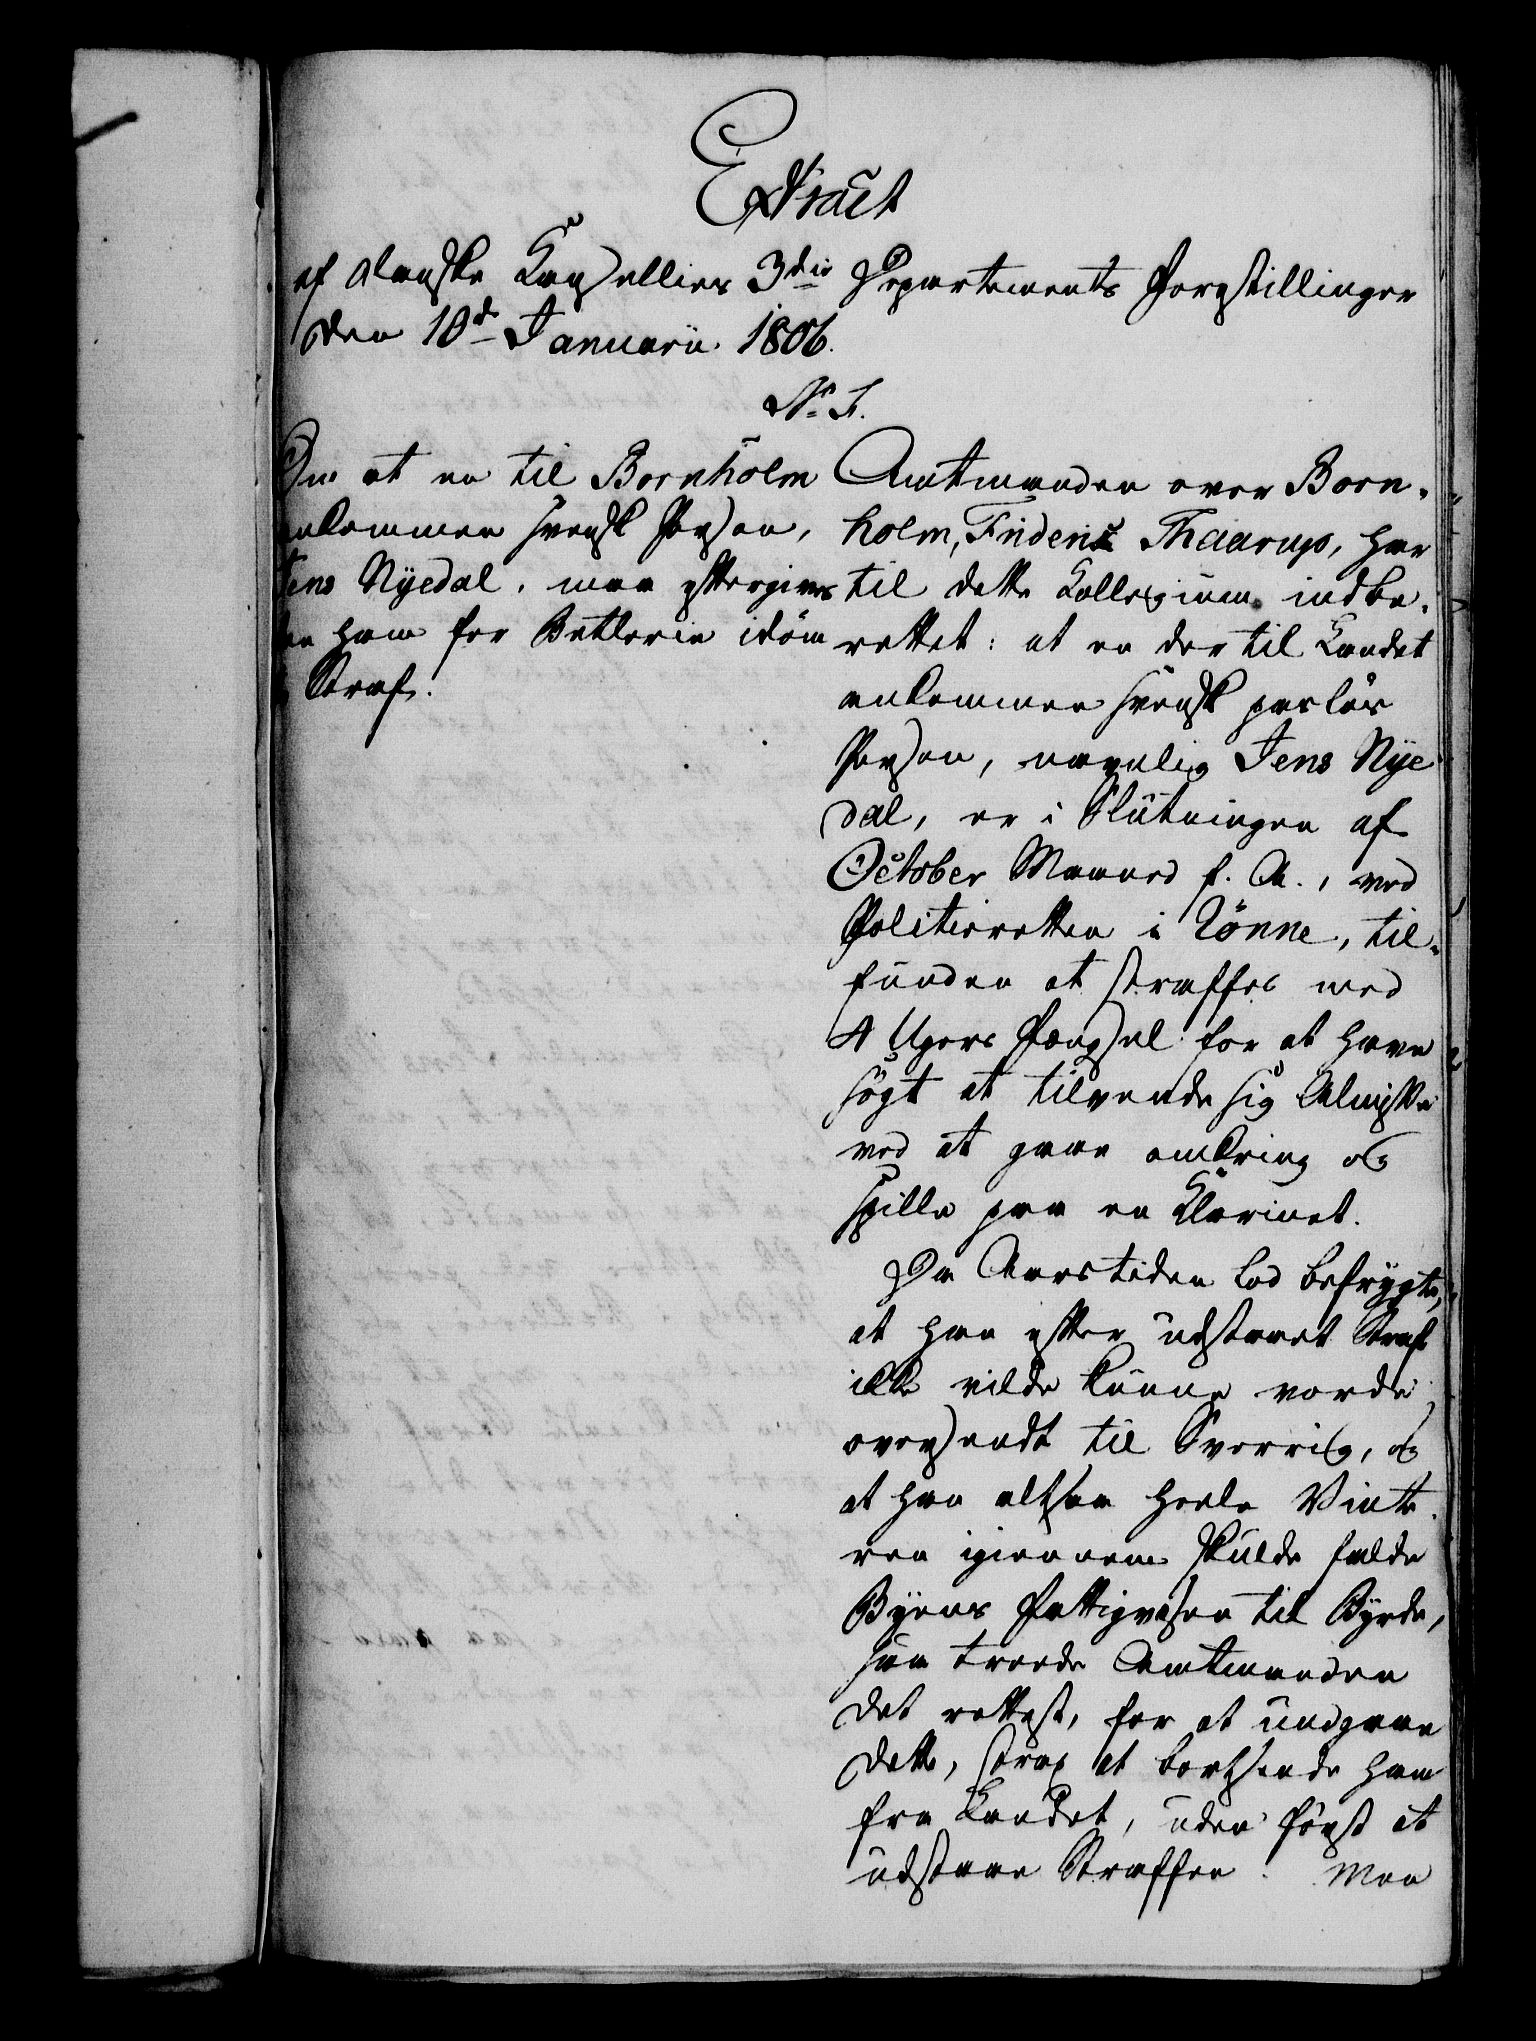 Extract
af danske Cancelliets 3die Departements Forestillinger
den 10de Januarii 1806.
No 1.
Om at en til Bornholm
ankommen svensk Person,
Jens Nyedal, maa eftergives
den ham for Betlerie idøm
Straf.
Amtmanden over Born-
holm, Frideric Thaarup, har
til dette Collegium indbe-
rettet: at en der til Landet
ankommen svensk pasløs
Person, navnlig Jens Nye
dal, er i Slutningen af
October Maaned f. A., ved
Politieretten i Rönne, til-
funden at straffes med
4 Ugers Fængsel for at have
søgt at tilvende sig Almisse
ved at gaae omkring og
spille paa en Clarinet.
Da Aarstiden lod befrygte,
at han efter udstaaet Straf
ikke vilde kunne vorde
oversendt til Sverrig, og
at han altsaa heele Vinte-
ren igiennem skulde falde
Byens Fattigvæsen til Byrde,
saa troede Amtmanden
det rettest, for at undgaae
dette, strax at bortsende ham
fra Landet, uden først at
udstaae Straffen. Men